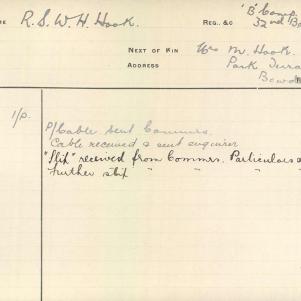 E R. S. W. H. Hook. Reg., &c 'B' Comp.
32nd Ba
Next of Kin Mrs M. Hook.
Address Park Terra
Bowd
1/p. P/Cable sent Commrs.
Cable received & sent enquirer
"Slip" received from Commrs. Particulars a
further slip " " "